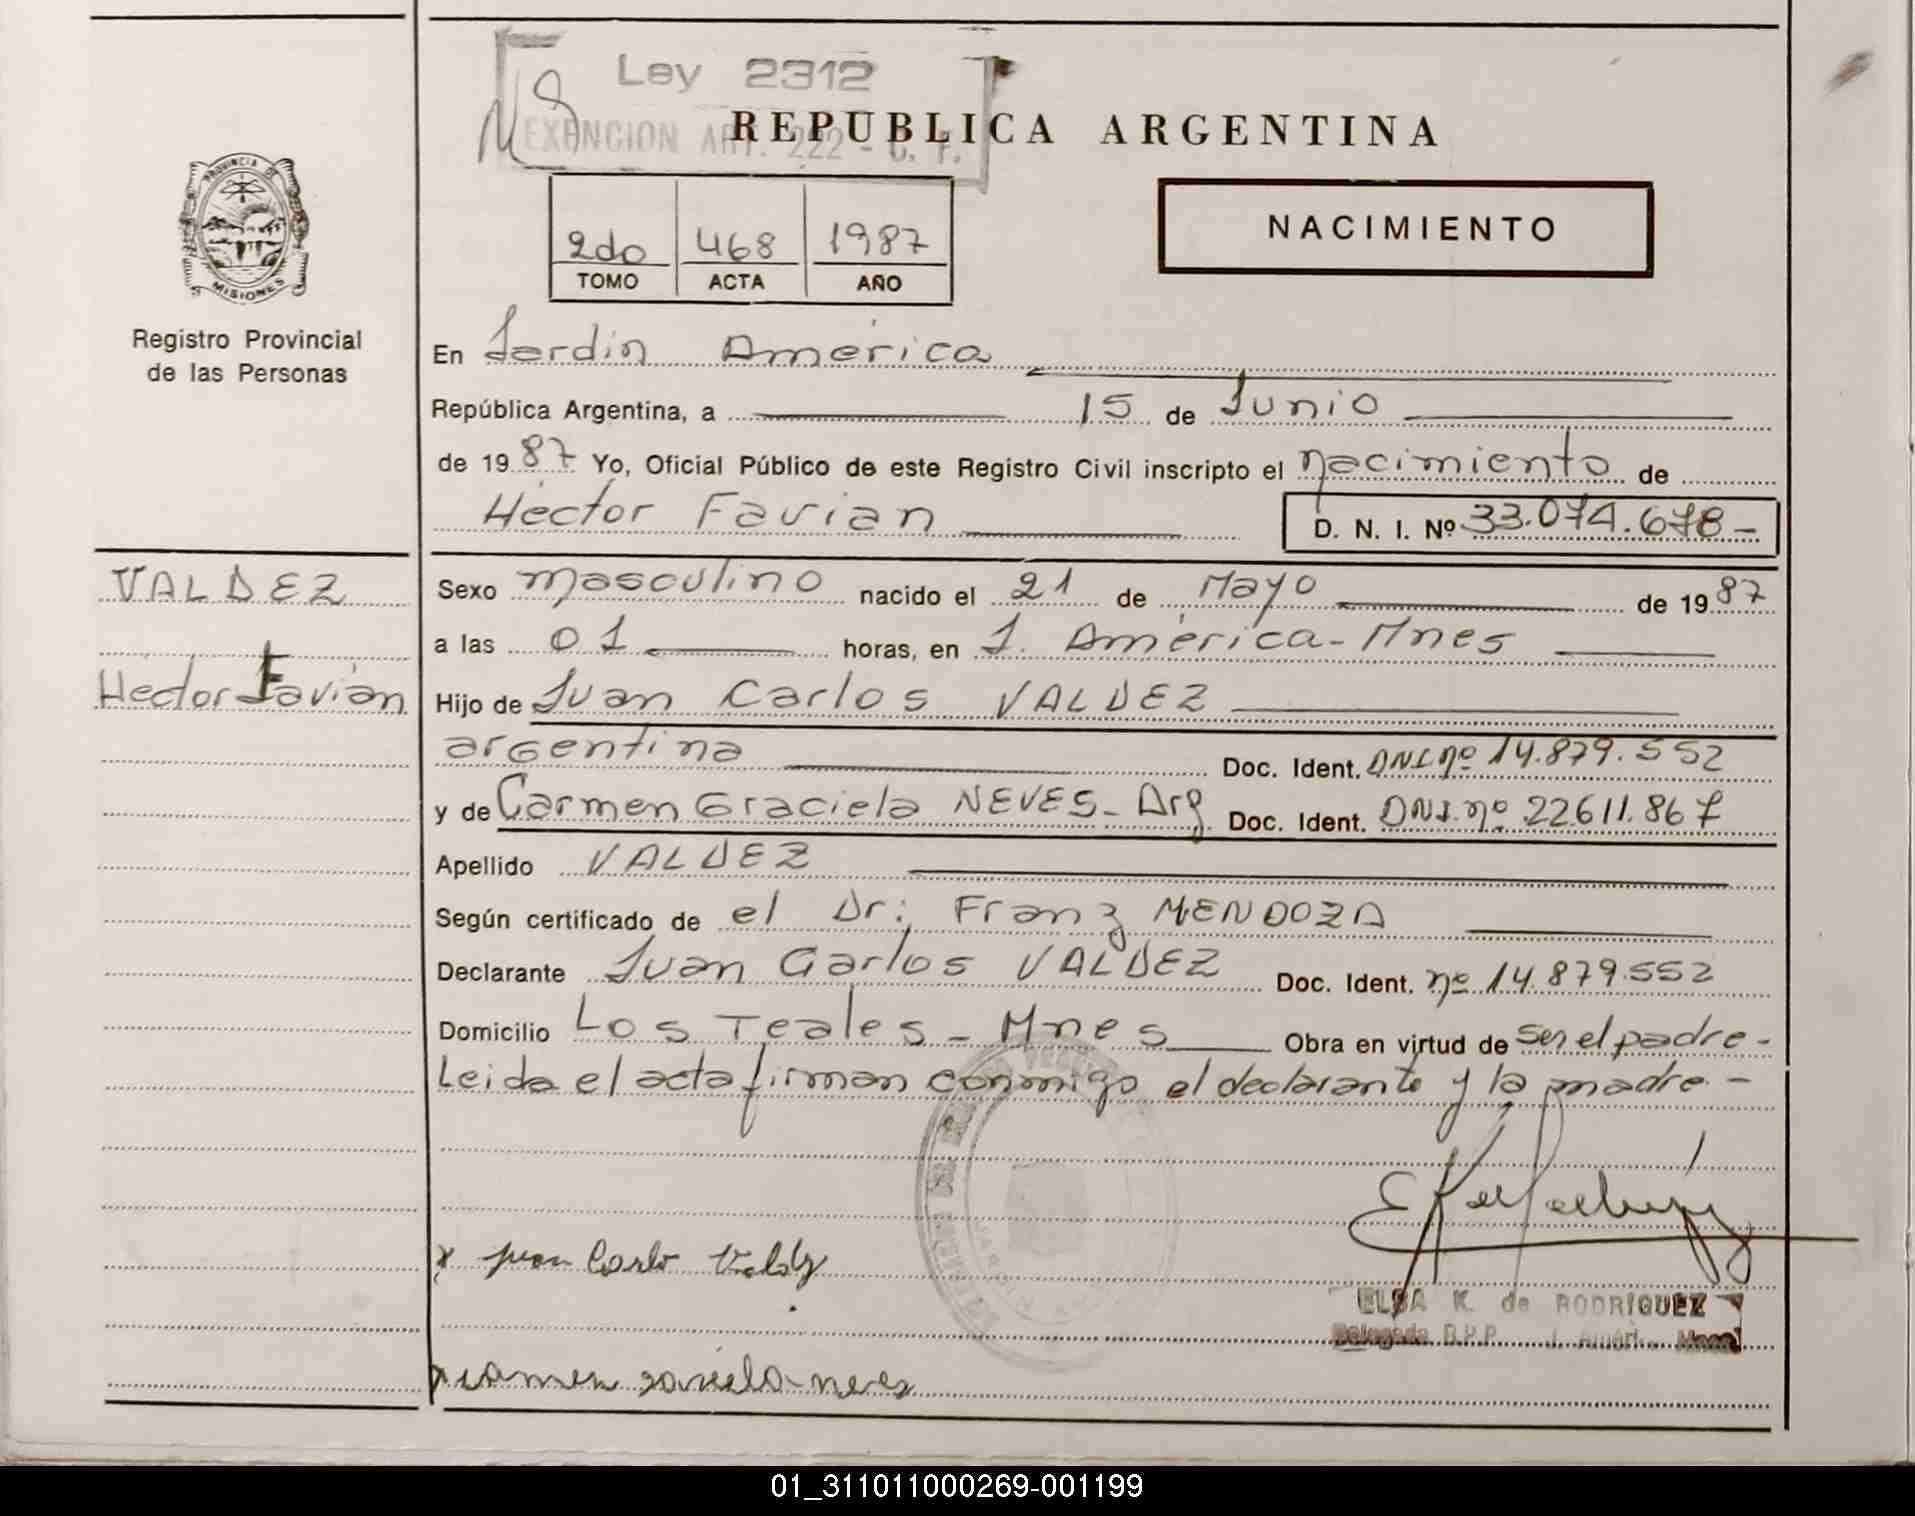 Ley 2312
EXENCION ART. 222 - C. F.
REPUBLICA ARGENTINA
PROVINCIA DE
MISIONES
Registro Provincial
de las Personas
2do 468 1987
TOMO ACTA AÑO
NACIMIENTO
En Jardin America
República Argentina, a 15 de Junio
de 1987 Yo, Oficial Público de este Registro Civil inscripto el nacimiento de
Hector Favian D. N. I. Nº 33.074.678-
VALDEZ
Hector Favian
Sexo masculino nacido el 21 de Mayo de 1987
a las 01 horas, en J. America - Mnes
Hijo de Juan Carlos VALDEZ
argentina Doc. Ident. DNI nº 14.879.552
y de Carmen Graciela NEVES - Arg Doc. Ident. DNI. nº 22611.867
Apellido VALDEZ
Según certificado de el Dr: Franz MENDOZA
Declarante Juan Carlos VALDEZ Doc. Ident. nº 14.879.552
Domicilio Los Teales - Mnes Obra en virtud de ser el padre -
Leida el acta firman conmigo el declarante y la madre. -
x juan Carlo Valdz
x carmen graciela neves
ELSA K. de RODRIGUEZ
Delegada R.P.P. J. Améri.
01_311011000269-001199